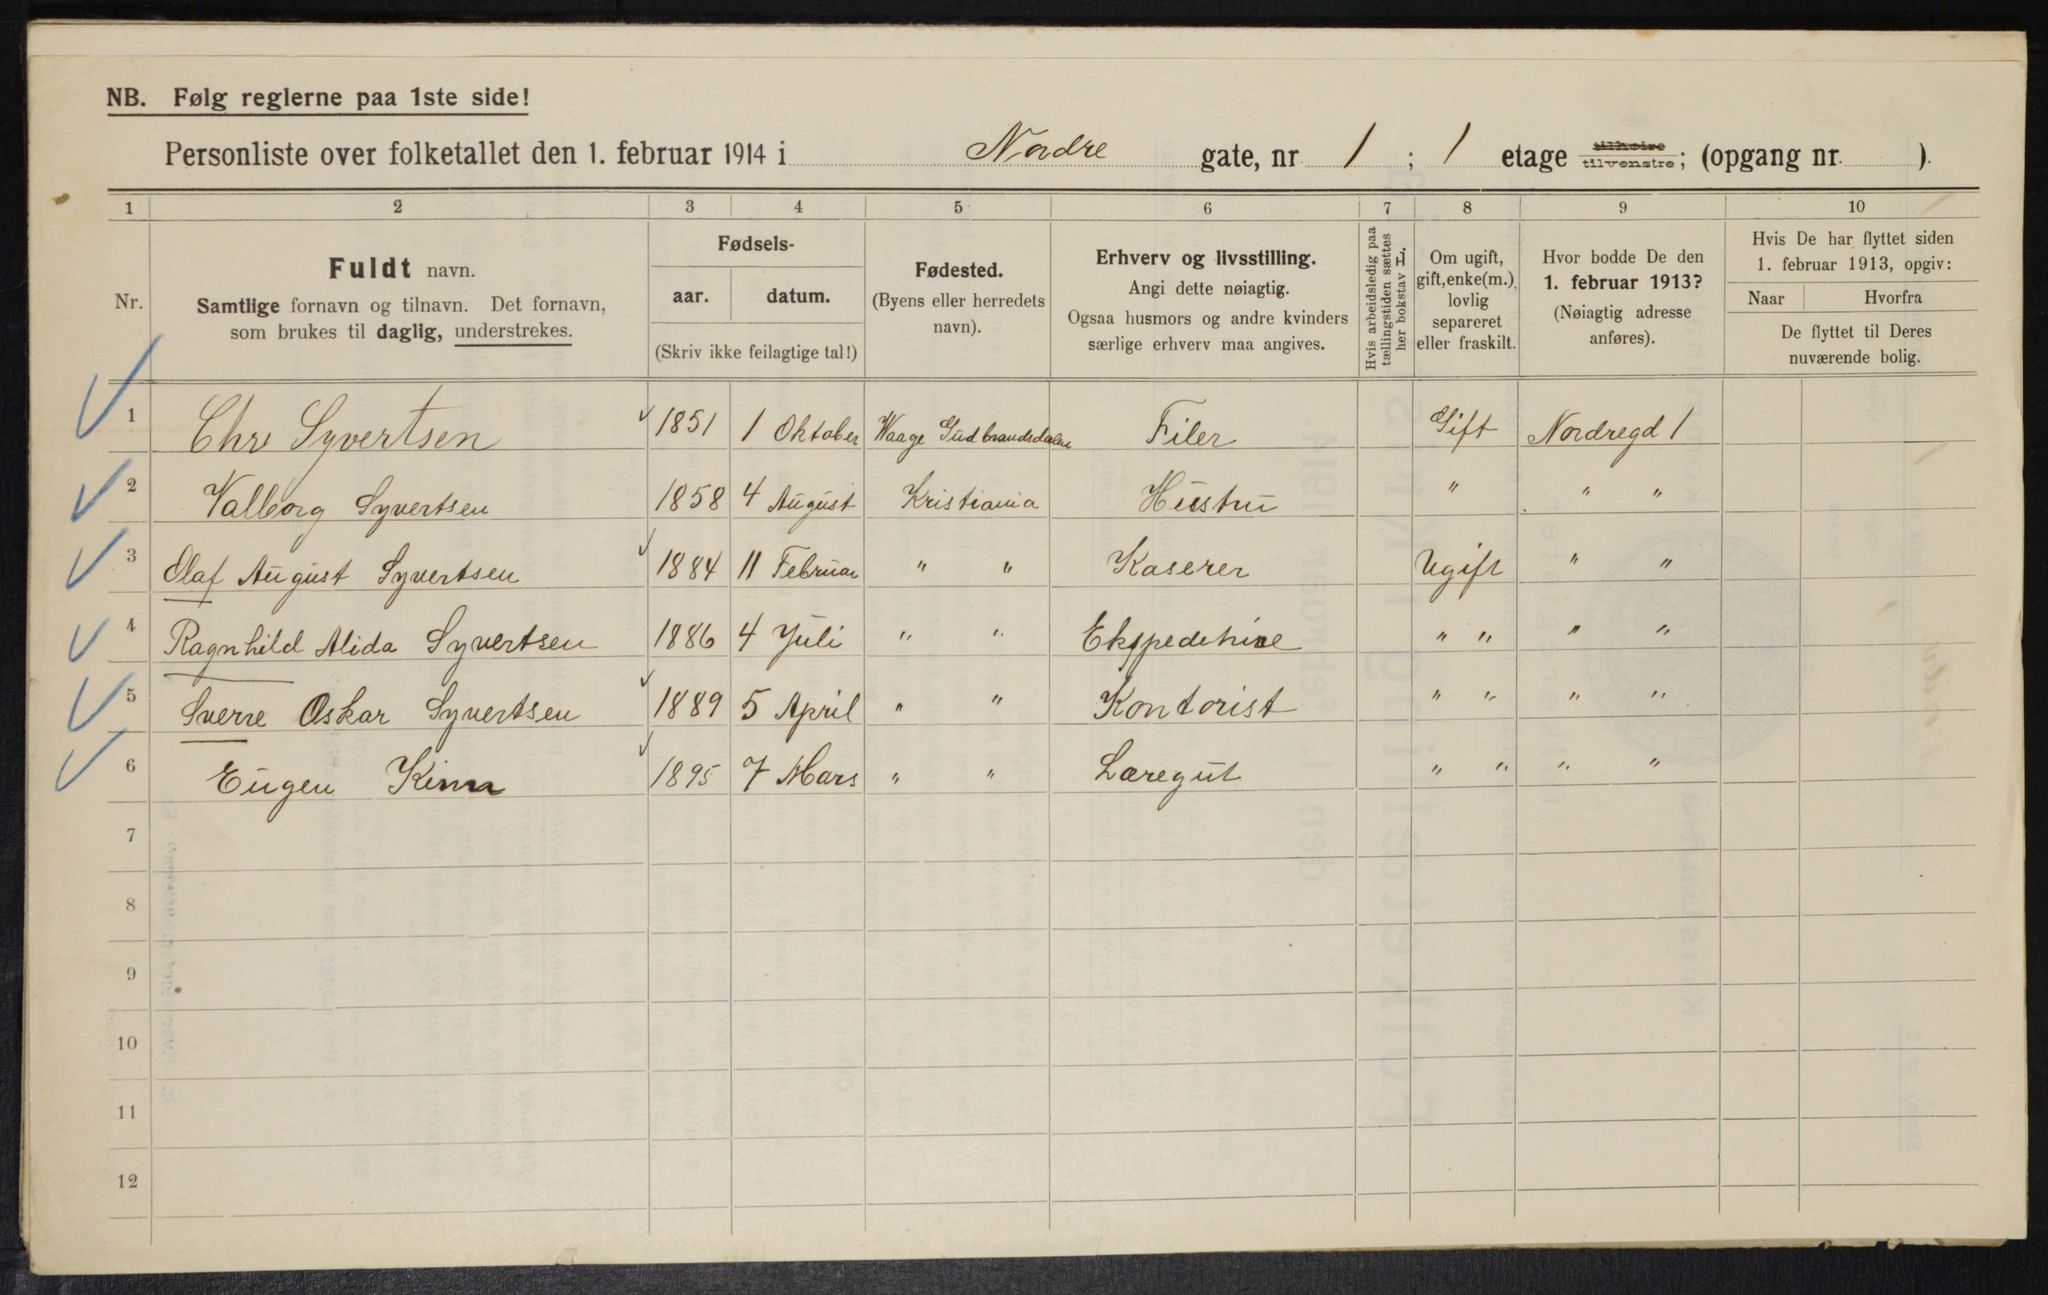 NB. Følg reglerne paa 1ste side!
Personliste over folketallet den 1. februar 1914 i Nordre gate, nr 1 ; 1 etage tilhøire tilvenstre; (opgang nr. ).
1 2 3 4 5 6 7 8 9 10
Nr.
Fuldt navn.
Samtlige fornavn og tilnavn. Det fornavn,
som brukes til daglig, understrekes.
Fødsels-
aar. datum.
(Skriv ikke feilagtige tal!)
Fødested.
(Byens eller herredets
navn).
Erhverv og livsstilling.
Angi dette nøiagtig.
Ogsaa husmors og andre kvinders
særlige erhverv maa angives.
Hvis arbeidsledig paa
tællingstiden sættes
her bokstav L.
Om ugift,
gift, enke(m.),
lovlig
separeret
eller fraskilt.
Hvor bodde De den
1. februar 1913?
(Nøiagtig adresse
anføres).
Hvis De har flyttet siden
1. februar 1913, opgiv:
Naar Hvorfra
De flyttet til Deres
nuværende bolig.
1 Chr Syvertsen 1851 1 Oktober Waage Gudbrandsdalen Filer Gift Nordregd 1
2 Valborg Syvertsen 1858 4 August Kristiania Hustru " " "
3 Olaf August Syvertsen 1884 11 Februar " " Kaserer Ugift " "
4 Ragnhild Alida Syvertsen 1886 4 Juli " " Ekspedetrice " " " "
5 Sverre Oskar Syvertsen 1889 5 April " " Kontorist " " " "
6 Eugen 1895 7 Mars " " Læregut " " " "
7
8
9
10
11
12